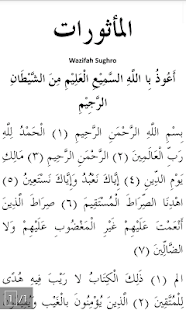 المأثورات
Wazifah Sughro
أَعُوذُ بِا للَّهِ السَّمِيْعِ الْعَلِيْمِ مِنَ الشَّيْطَانِ
الرَّجِيْمِ
بِسْمِ اللَّهِ الرَّحْمَنِ الرَّحِيمِ (١) الْحَمْدُ لِلَّهِ
رَبِّ الْعَالَمِينَ (٢) الرَّحْمَنِ الرَّحِيمِ (٣) مَالِكِ
يَوْمِ الدِّينِ (٤) إِيَّاكَ نَعْبُدُ وَإِيَّاكَ نَسْتَعِينُ (٥)
اهْدِنَا الصِّرَاطَ الْمُسْتَقِيمَ (٦) صِرَاطَ الَّذِينَ
أَنْعَمْتَ عَلَيْهِمْ غَيْرِ الْمَغْضُوبِ عَلَيْهِمْ وَلا
الضَّالِّينَ (٧)
الم (١) ذَلِكَ الْكِتَابُ لا رَيْبَ فِيهِ هُدًى
لِلْمُتَّقِينَ (٢) الَّذِينَ يُؤْمِنُونَ بِالْغَيْبِ